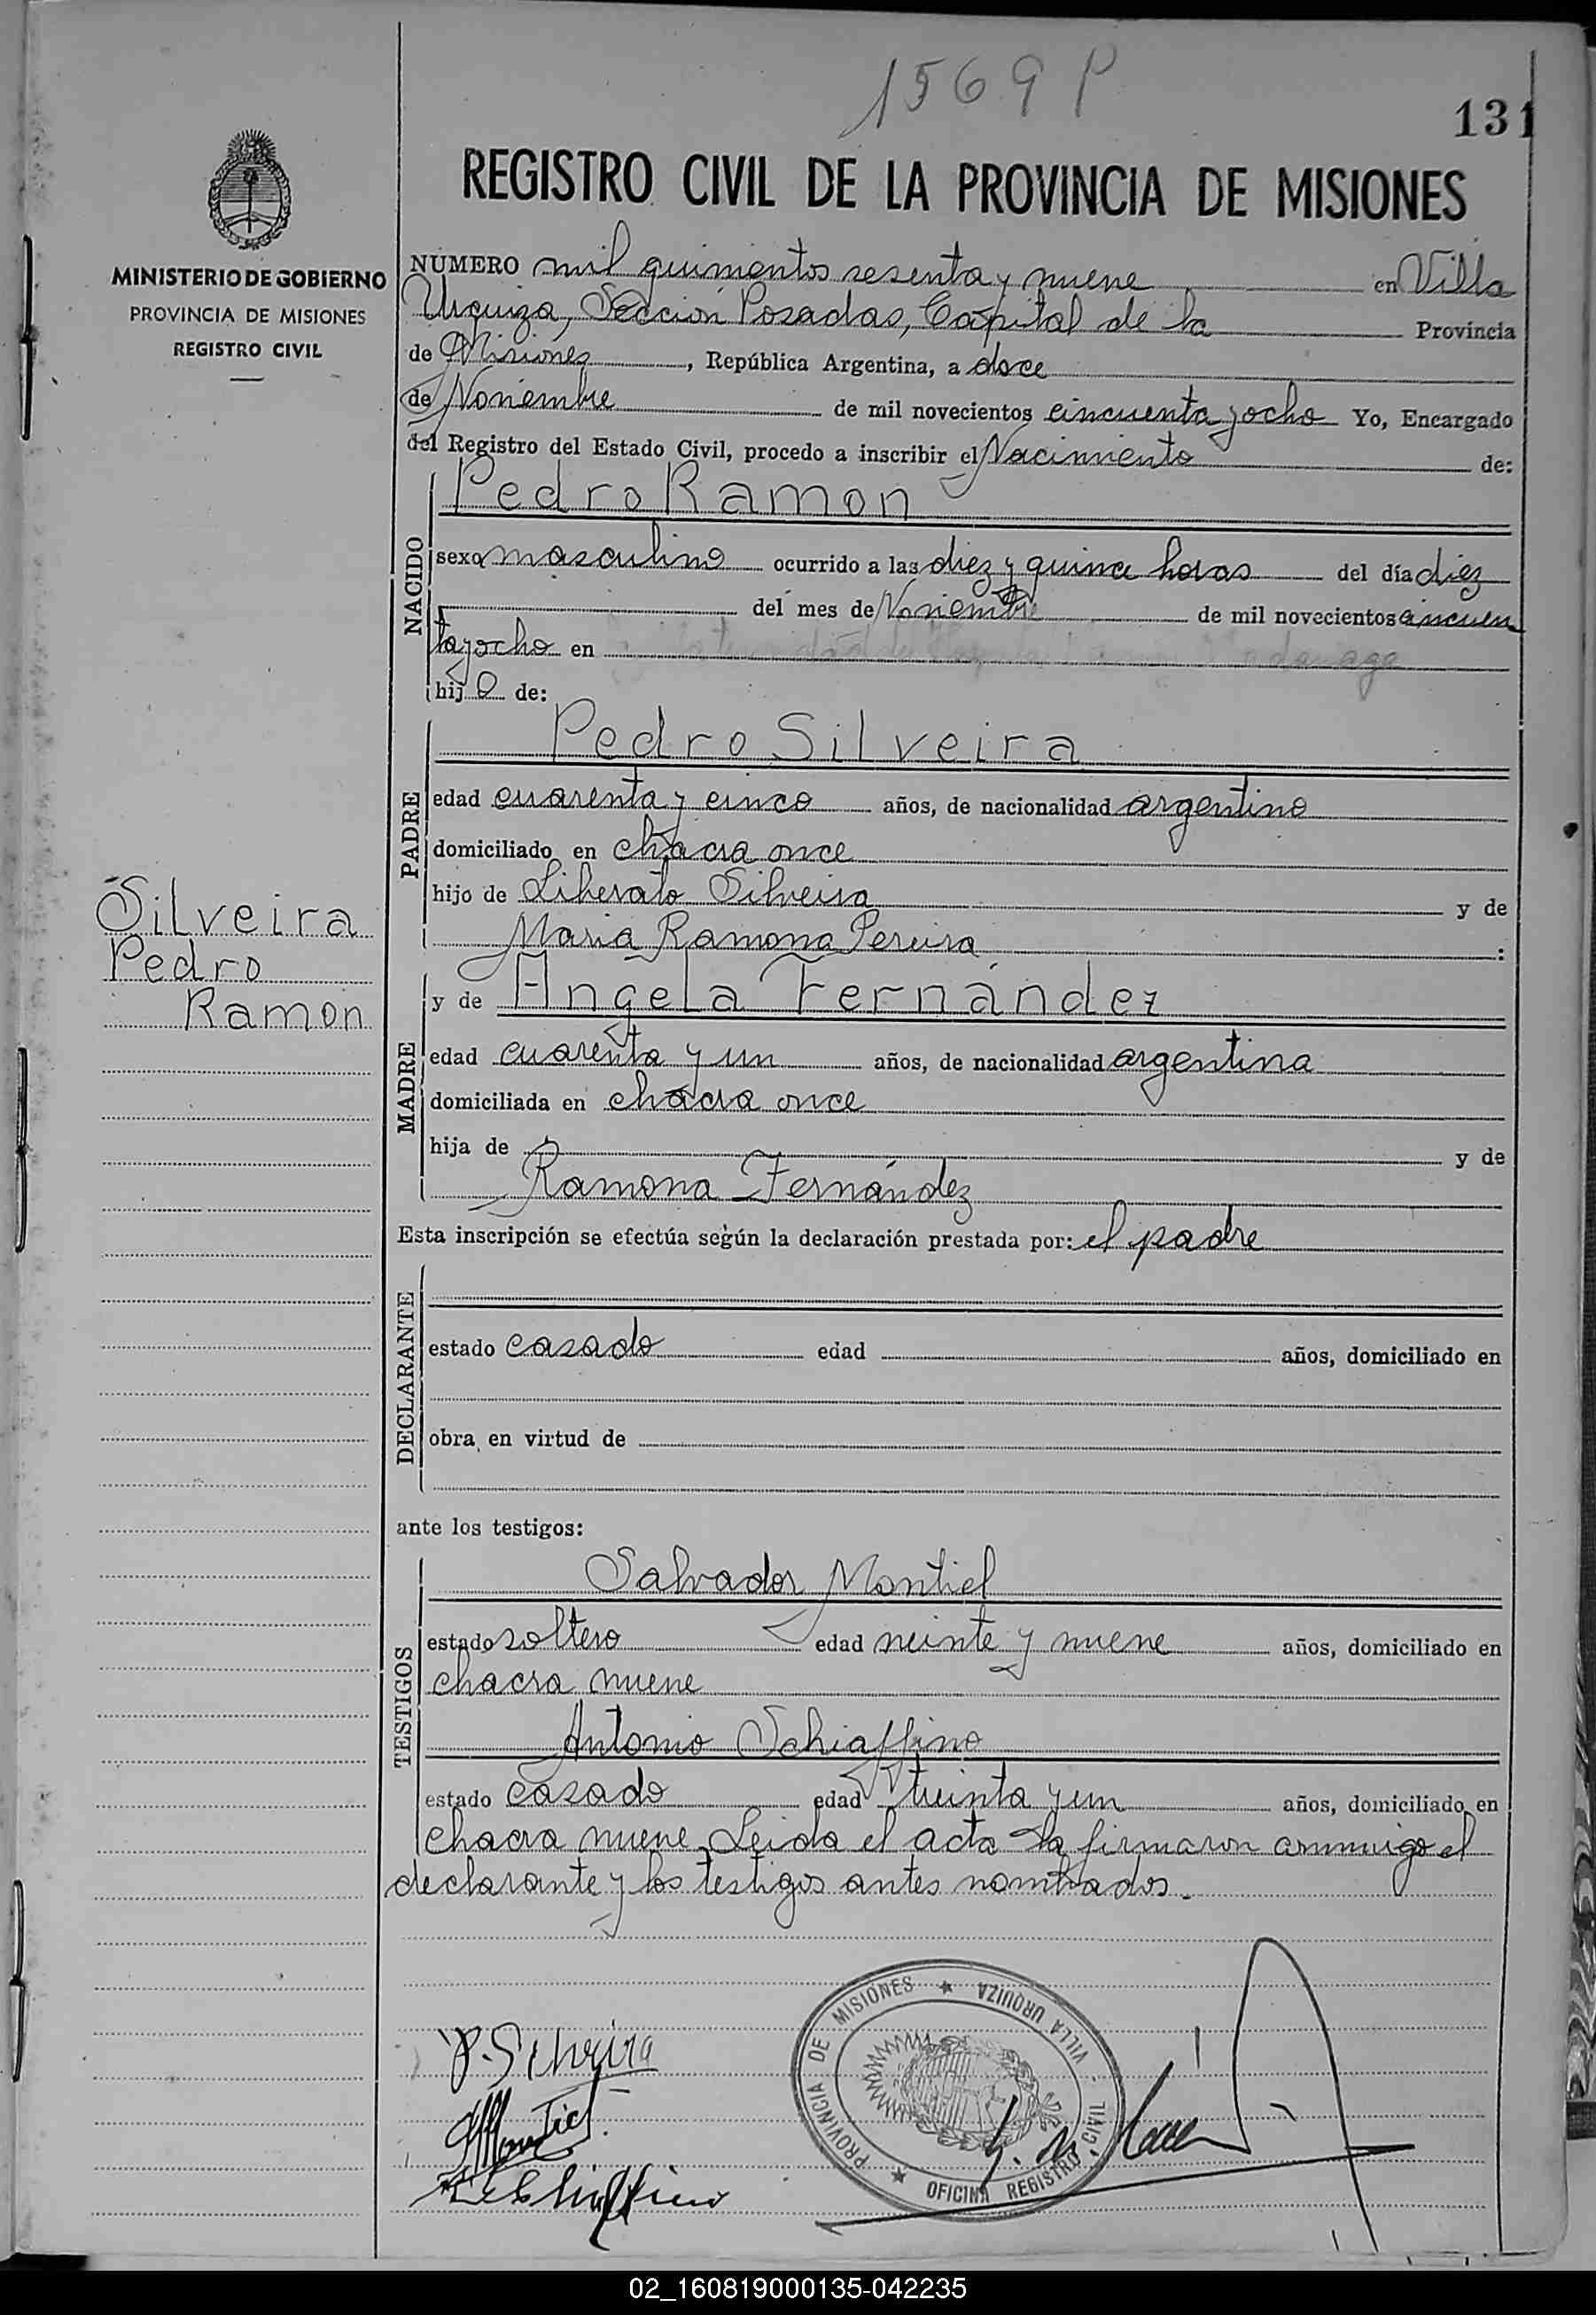 1569 P
131
REGISTRO CIVIL DE LA PROVINCIA DE MISIONES
MINISTERIO DE GOBIERNO
PROVINCIA DE MISIONES
REGISTRO CIVIL
NUMERO mil quinientos sesenta y nueve en Villa
Urquiza, Sección Posadas, Capital de la Provincia
de Misiones, República Argentina, a doce
de Noviembre de mil novecientos cincuenta y ocho Yo, Encargado
del Registro del Estado Civil, procedo a inscribir el Nacimiento de:
NACIDO
Pedro Ramon
sexo masculino ocurrido a las diez y quince horas del día diez
del mes de Noviembre de mil novecientos cincuen
ta y ocho en
hijo de:
PADRE
Pedro Silveira
edad cuarenta y cinco años, de nacionalidad argentino
domiciliado en chacra once
hijo de Liberato Silveira y de
Maria Ramona Pereira :
Silveira
Pedro
Ramon
MADRE
y de Angela Fernández
edad cuarenta y un años, de nacionalidad argentina
domiciliada en chacra once
hija de y de
Ramona Fernández
Esta inscripción se efectúa según la declaración prestada por: el padre
DECLARANTE
estado casado edad años, domiciliado en
obra en virtud de
ante los testigos:
TESTIGOS
Salvador Montiel
estado soltero edad veinte y nueve años, domiciliado en
chacra nueve
Antonio Schiaffino
estado casado edad treinta y un años, domiciliado en
chacra nueve. Leida el acta la firmaron conmigo el
declarante y los testigos antes nombrados.
P. Silveira
Montiel
Schiaffino
PROVINCIA DE MISIONES ★ VILLA URQUIZA
OFICINA REGISTRO CIVIL ★
02_160819000135-042235